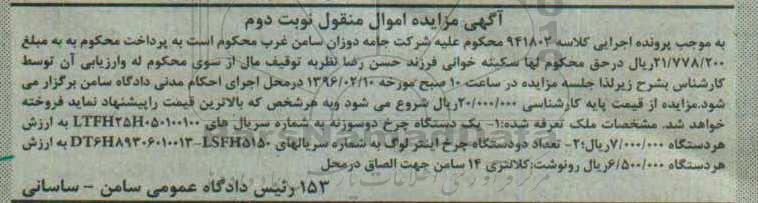 آگهی مزایده اموال منقول نوبت دوم
به موجب پرونده اجرایی کلاسه ۹۴۱۸۰۲ محکوم علیه شرکت جامه دوزان سامن غرب محکوم است به پرداخت محکوم به به مبلغ
۲۱/۷۷۸/۲۰۰ریال درحق محکوم لها سکینه خوانی فرزند حسن رضا نظربه توقیف مال از سوی محکوم له وارزیابی آن توسط
کارشناس بشرح زیرلذا جلسه مزایده در ساعت ۱۰ صبح مورخه ۱۳۹۶/۰۲/۱۰ درمحل اجرای احکام مدنی دادگاه سامن برگزار می
شود.مزایده از قیمت پایه کارشناسی ۲۰/۰۰۰/۰۰۰ریال شروع می شود وبه هرشخص که بالاترین قیمت راپیشنهاد نماید فروخته
خواهد شد. مشخصات ملک تعرفه شده:۱- یک دستگاه چرخ دوسوزنه به شماره سریال های LTFH۲۵H۰۵۰۱۰۰۱۰۰ به ارزش
هردستگاه ۷/۰۰۰/۰۰۰ریال؛۲- تعداد دودستگاه چرخ اینتر لوگ به شماره سریالهای DT۶H۸۹۳۰۶۰۱۰۰۱۳-LSFH۵۱۵۰ به ارزش
هردستگاه ۶/۵۰۰/۰۰۰ریال رونوشت:کلانتری ۱۴ سامن جهت الصاق درمحل
۱۵۳ رئیس دادگاه عمومی سامن - ساسانی